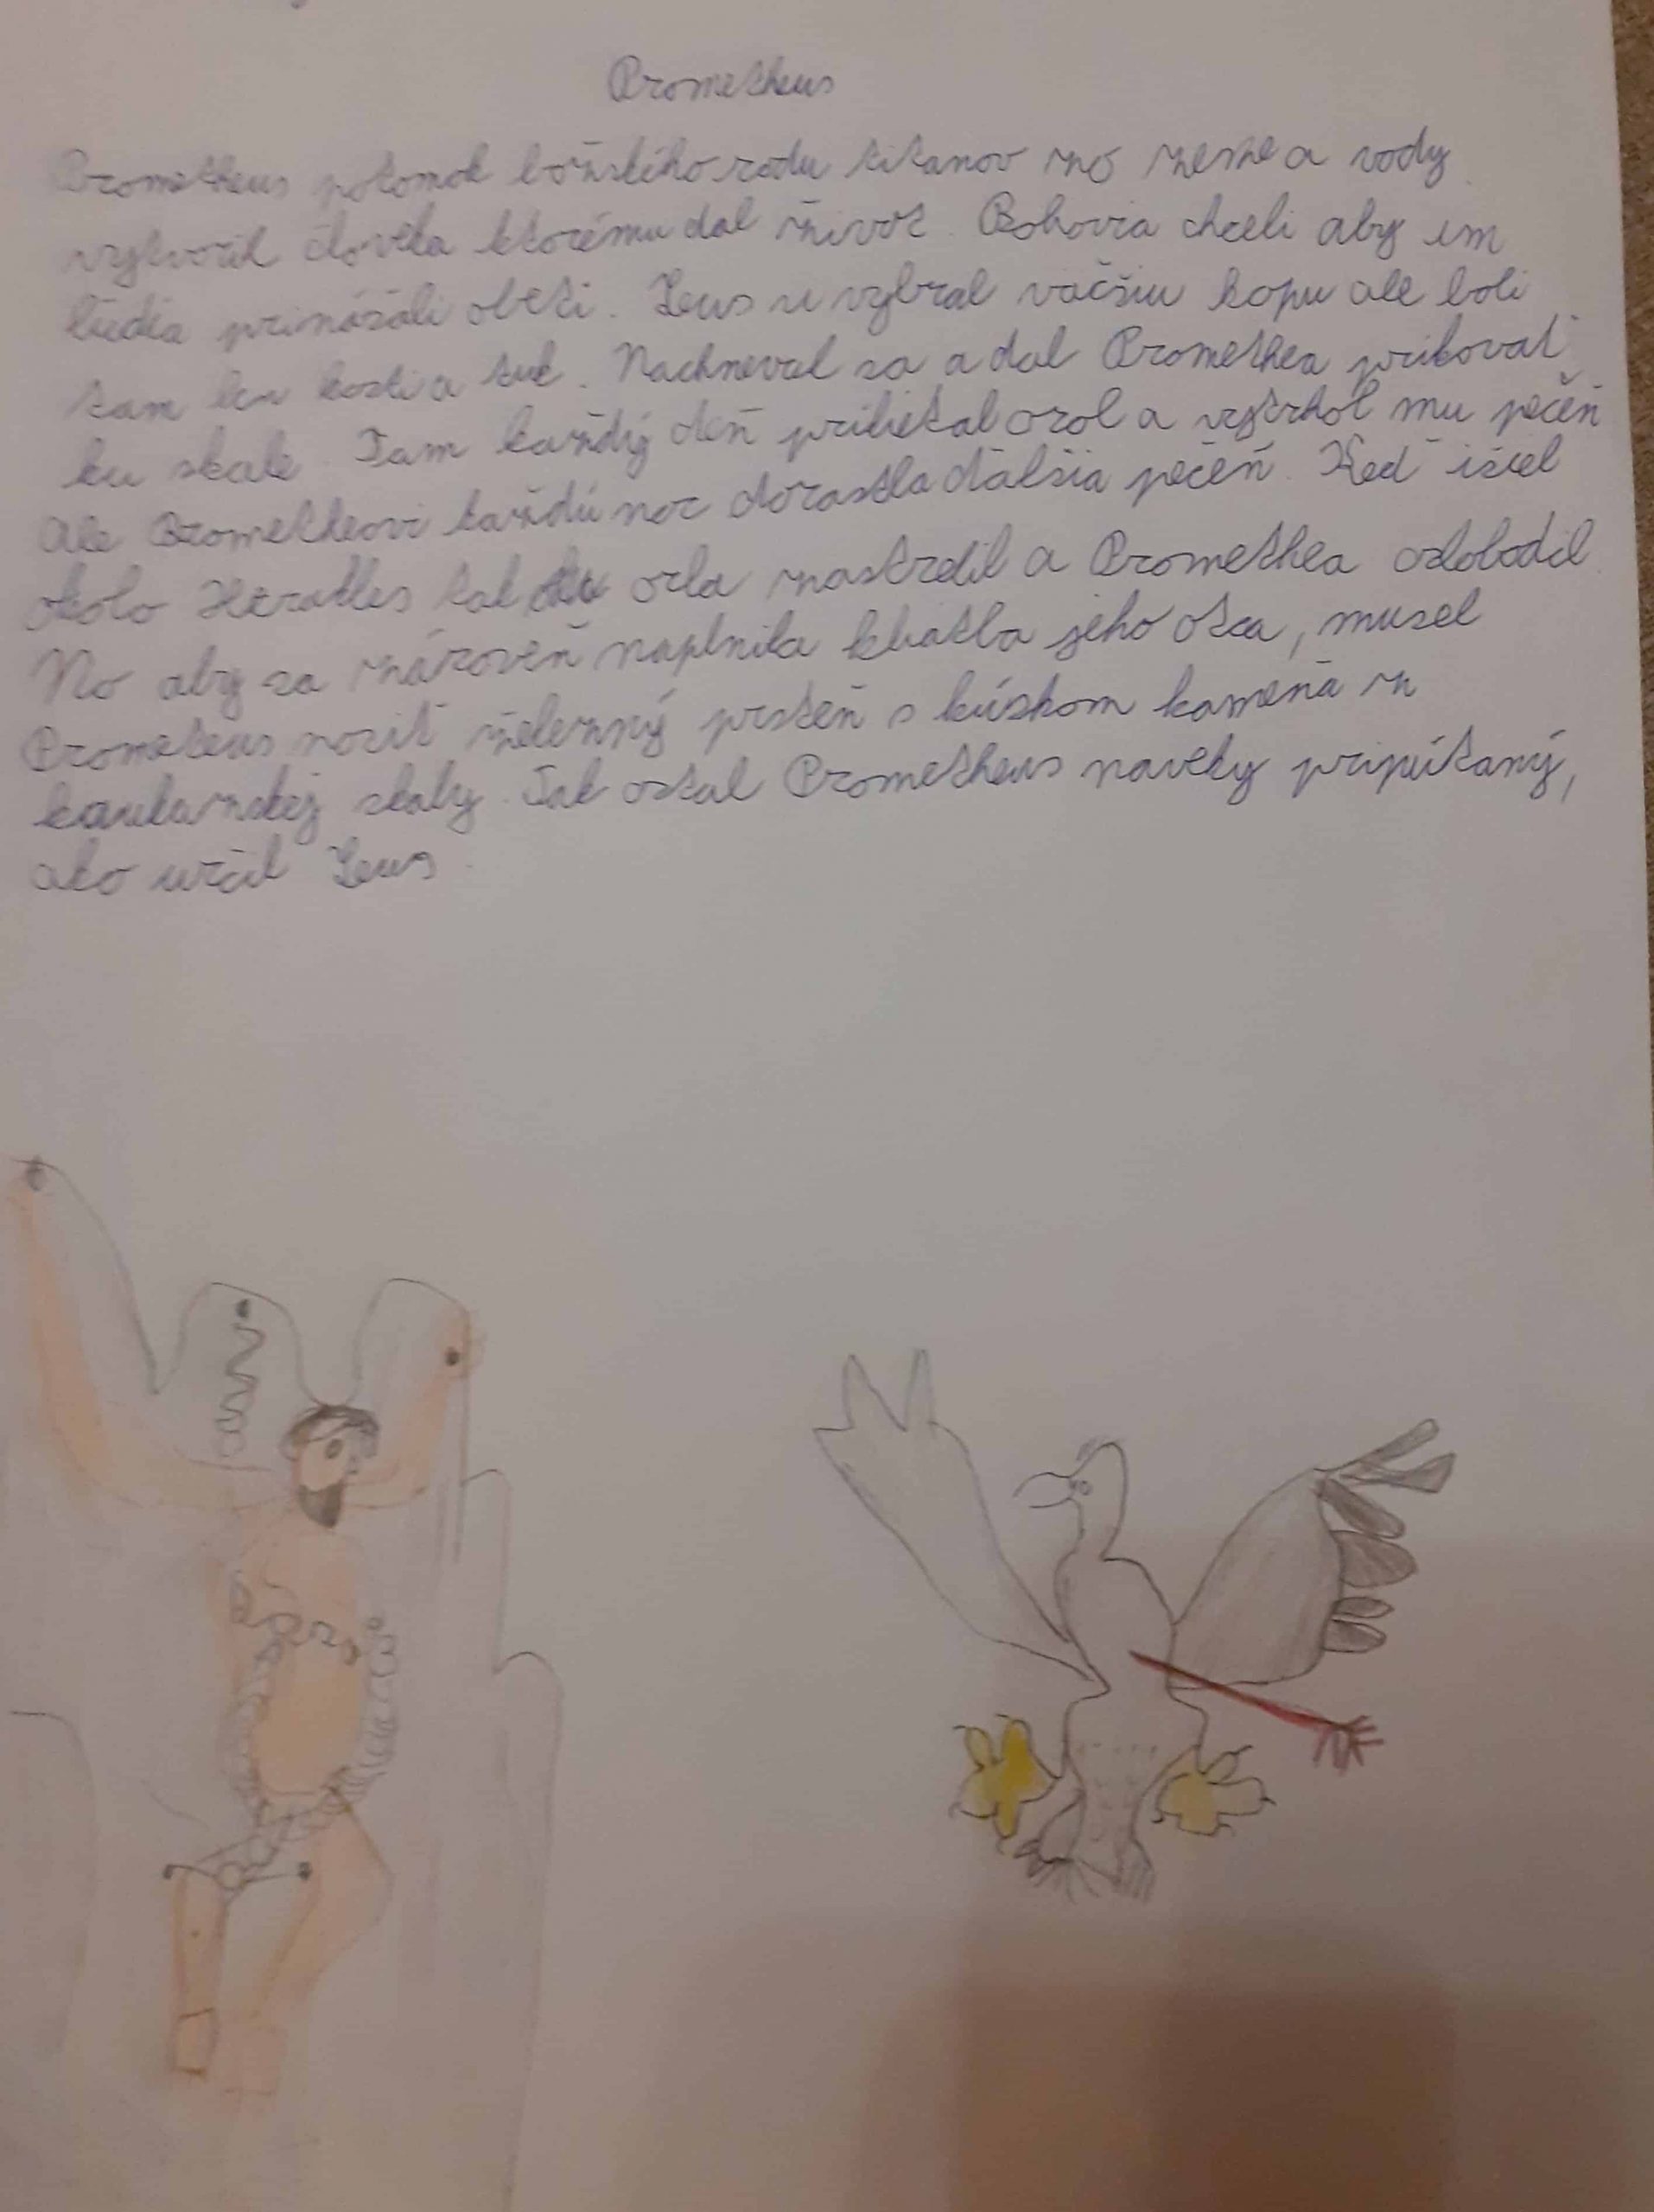 Prometheus
Prometheus potomok božského rodu titanov zo zeme a vody
vytvoril človeka ktorému dal život. Bohovia chceli aby im
ľudia prinášali obeti. Zeus si vybral väčšiu kopu ale boli
tam len kosti a tuk. Nachneval sa a dal Promethea prikovať
ku skale. Tam každý deň prilietal orol a vytrhol mu pečeň
Ale Prometheovi každú noc dorastla ďalšia pečeň. Keď išiel
okolo Herakles tak orla zastrelil a Promethea oslobodil.
No aby sa zároveň naplnila kliatba jeho otca, musel
Prometeus nosiť železný prsteň s kúskom kameňa z
kaukazskej skaly. Tak ostal Prometheus naveky pripútaný,
ako určil Zeus.